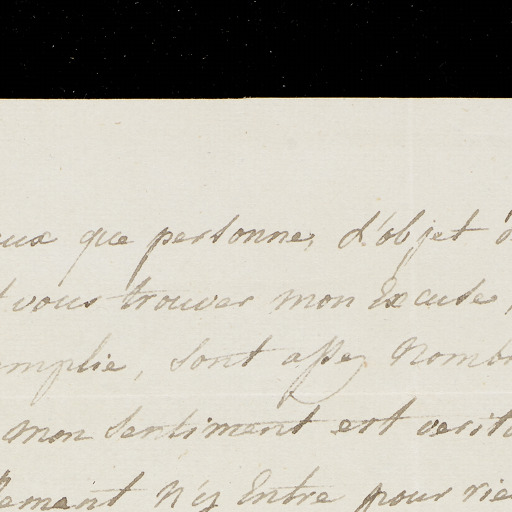 que personne, d'objet
vous trouver mon Excuse,
emplie, sont assez nomb
mon sentiment est verit
ement n'y Entre pour rie